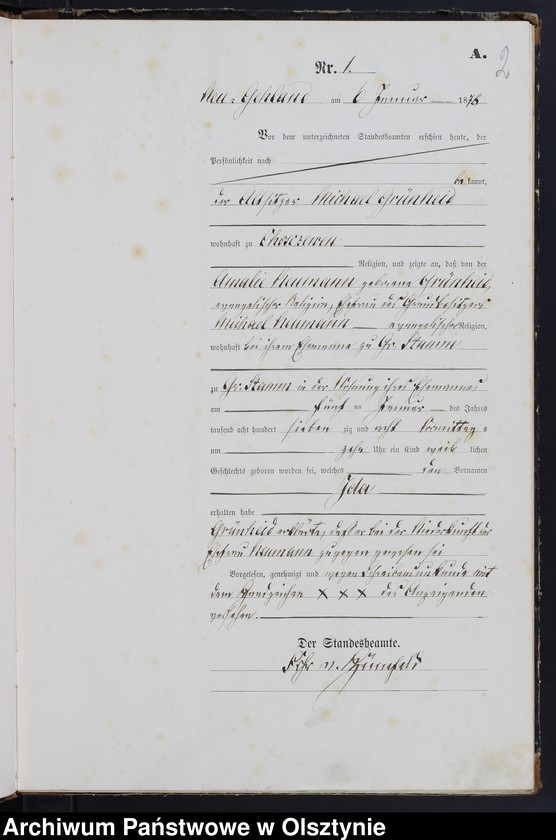 A.
2
Nr. 1.
am 6 Januar 1878
Vor dem unterzeichneten Standesbeamten erschien heute, der
Persönlichkeit nach
bekannt,
der Altsitzer Michael Grünheid
wohnhaft zu Choszewen
Religion, und zeigte an, daß von der
Amalie Neumann geborene Grünheid,
evangelischer Religion, Ehefrau des Grundbesitzers
Michael Neumann evangelischer Religion,
wohnhaft bei ihrem Ehemanne zu Gr. Stamm
zu Gr. Stamm in der Wohnung ihres Ehemannes
am fünf ten Januar des Jahres
tausend acht hundert sieben zig und acht Vormittags
um zehn Uhr ein Kind weib lichen
Geschlechts geboren worden sei, welches den Vornamen
Ida
erhalten habe
Grünheid erklärte, daß er bei der Niederkunft der
Ehefrau Neumann zugegen gewesen sei
Vorgelesen, genehmigt und wegen Schreibensunkunde mit
dem Handzeichen X X X des Anzeigenden
versehen.
Der Standesbeamte.
Archiwum Państwowe w Olsztynie